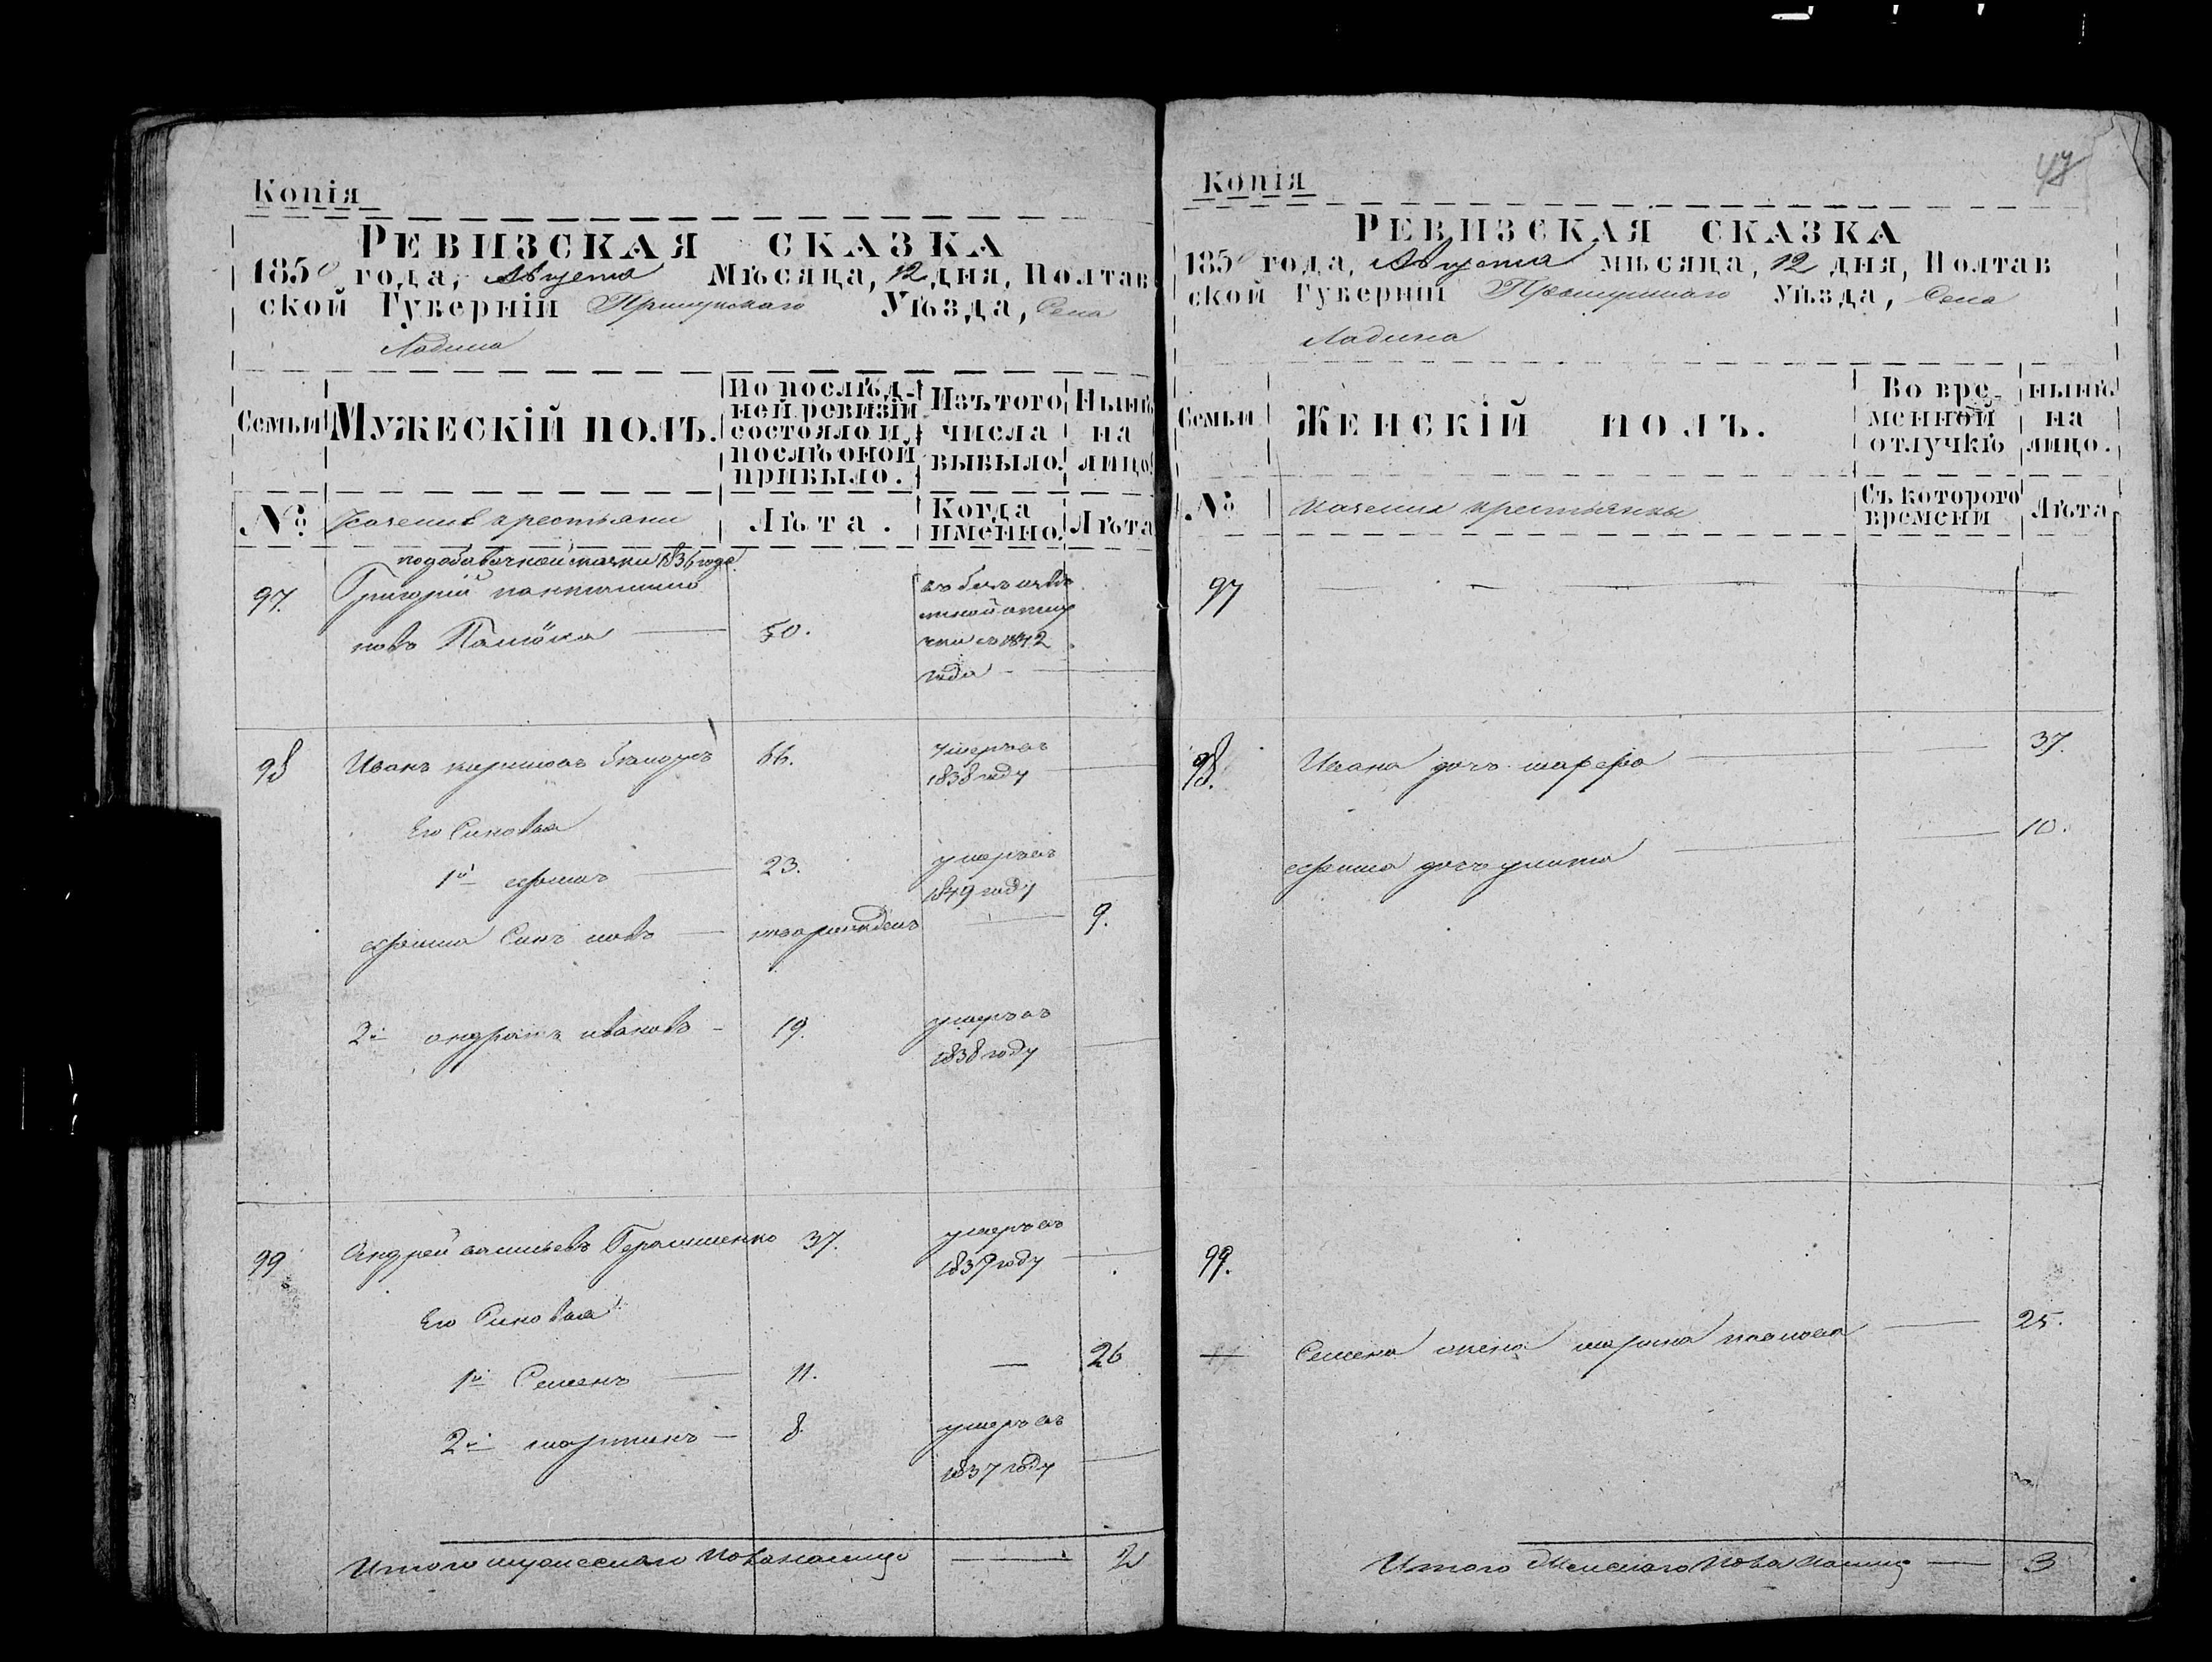 Копія
РЕВИЗСКАЯ СКАЗКА
1850 года, Августа Мѣсяца, 12 дня, Полтав
ской Губерніи Прилукского Уѣзда, Села
Ладина
Семьи
МУЖЕСКІЙ ПОЛЪ.
По послѣд-
ней ревизіи
состояло и
послѣ оной
прибыло.
Изъ того
числа
выбыло.
Нынѣ
на
лицо.
№
Казенние крестьяни
Лѣта.
Когда
именно.
Лѣта
подобавочной сказки 1836 года
97. Григорій
новъ 50.
1842
года
98 Иванъ 66. умеръ въ
1838 году
Его Синовья
1й 23. умеръ въ
1849 году
Синъ 9.
2й ивановъ 19. умеръ въ
1838 году
99 Андрей васильевъ Герасименко 37. умеръ въ
1837 году
Его Синовья
1й Семенъ 11. 26
2й мартинъ 8. умеръ въ
1837 году
Итого мужеского пола налицо 2
47
Копія
РЕВИЗСКАЯ СКАЗКА
1850 года, Августа мѣсяца, 12 дня, Полтав
ской Губерніи Прилукского Уѣзда, Села
Ладина
Семьи
ЖЕНСКІЙ ПОЛЪ.
Во вре-
менной
отлучкѣ
нынѣ
на
лицо.
№
Казенние крестьянки
Съ котораго
времени
Лѣта
97
98. Ивана дочь марфа 37.
дочь улита 10.
99.
Семена жена марина павлова 25.
Итого Женского пола налицо 3